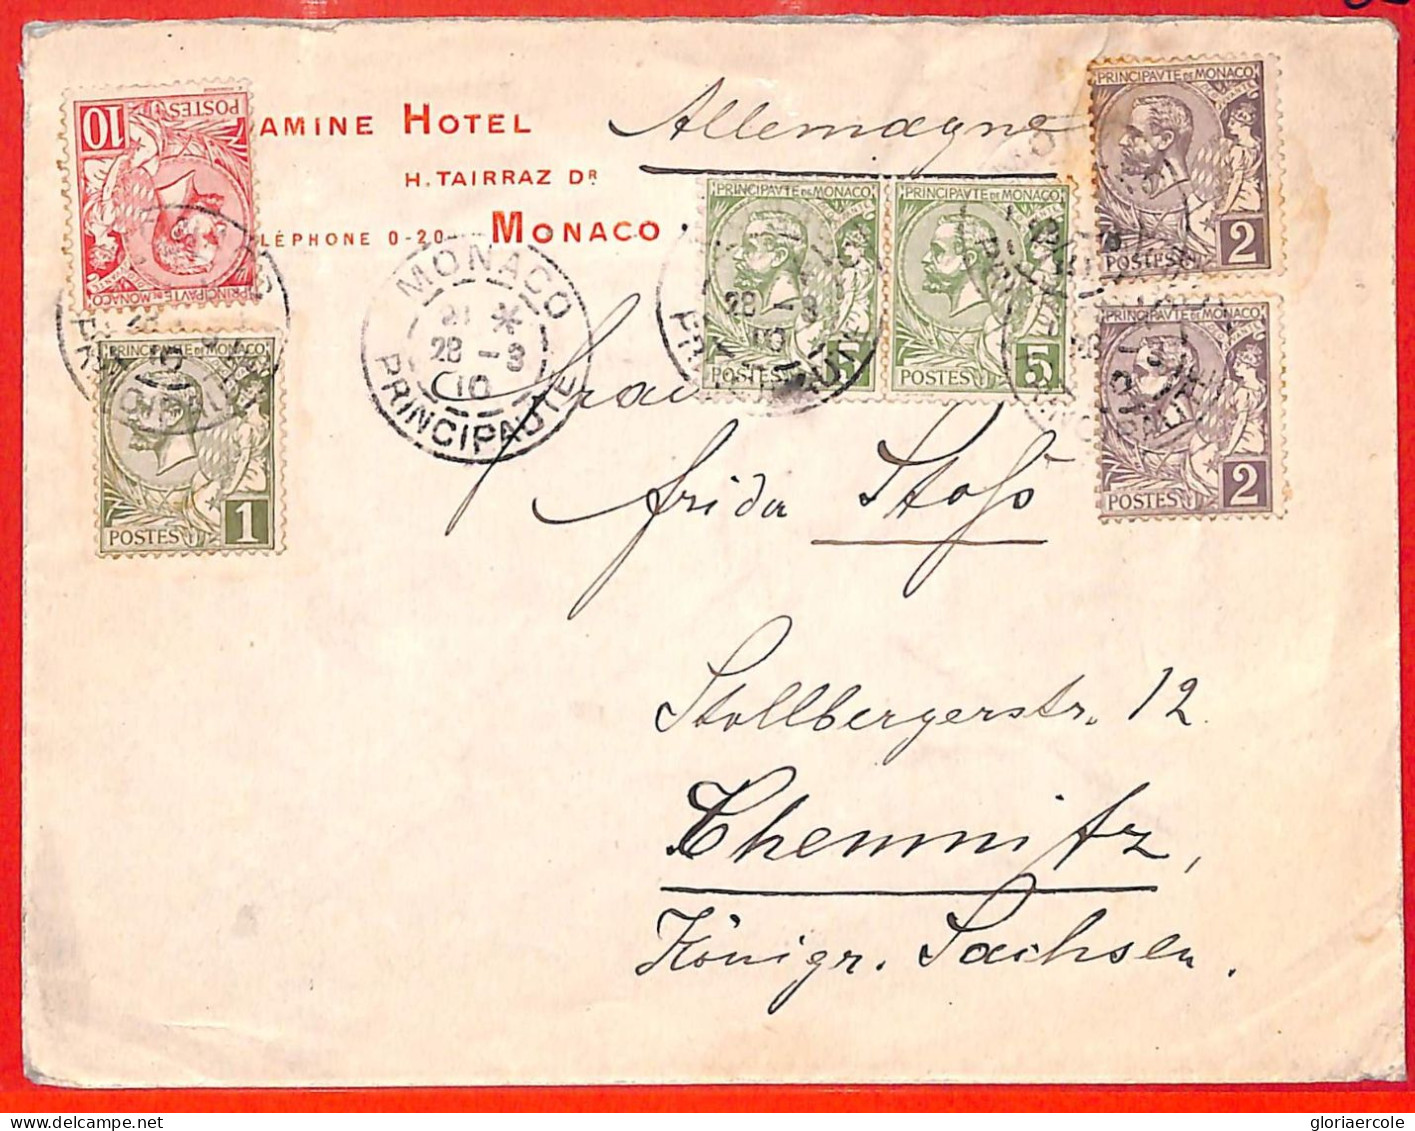 AMINE HOTEL
H. TAIRRAZ DR
LÉPHONE 0-20 MONACO
Allemagne
PRINCIPAVTE DE MONACO
POSTES 10
PRINCIPAVTE DE MONACO
POSTES 1
PRINCIPAVTE DE MONACO
POSTES 5
PRINCIPAVTE DE MONACO
POSTES 5
PRINCIPAVTE DE MONACO
POSTES 2
PRINCIPAVTE DE MONACO
POSTES 2
MONACO
21 *
28 - 3
10
PRINCIPAUTE
Frau
Frida Stoß
Stollbergerstr. 12
Chemnitz,
Königr. Sachsen.
gloriaercole